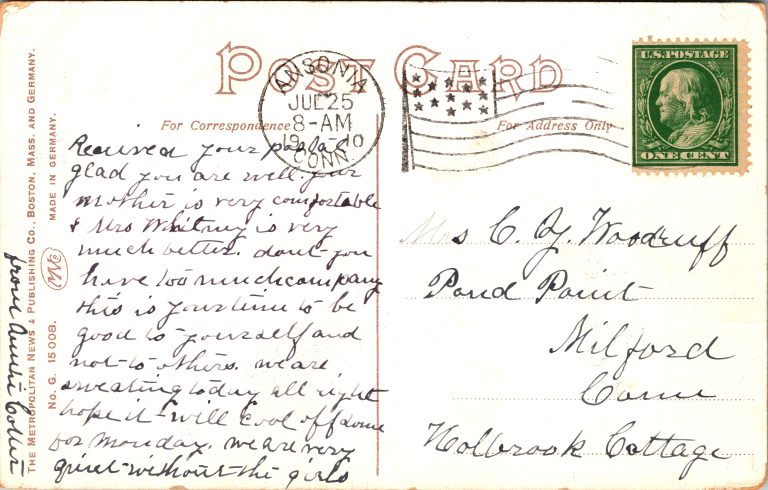 POST CARD
ANSONIA
JUL 25
8-AM
1910
CONN.
U.S. POSTAGE
ONE CENT
For Correspondence
For Address Only
Received your postal
glad you are well. your
mother is very comfortable
& Mrs Whitney is very
much better. dont you
have too much company
this is your time to be
good to yourself and
not to others. we are
sweating today all right
hope it will cool off some
for Monday. we are very
quiet without the girls
from Auntie
Mrs C. Y. Woodruff
Pond Point
Milford
Conn
Holbrook Cottage
THE METROPOLITAN NEWS & PUBLISHING CO., BOSTON, MASS. AND GERMANY.
MADE IN GERMANY.
No. G. 15008.